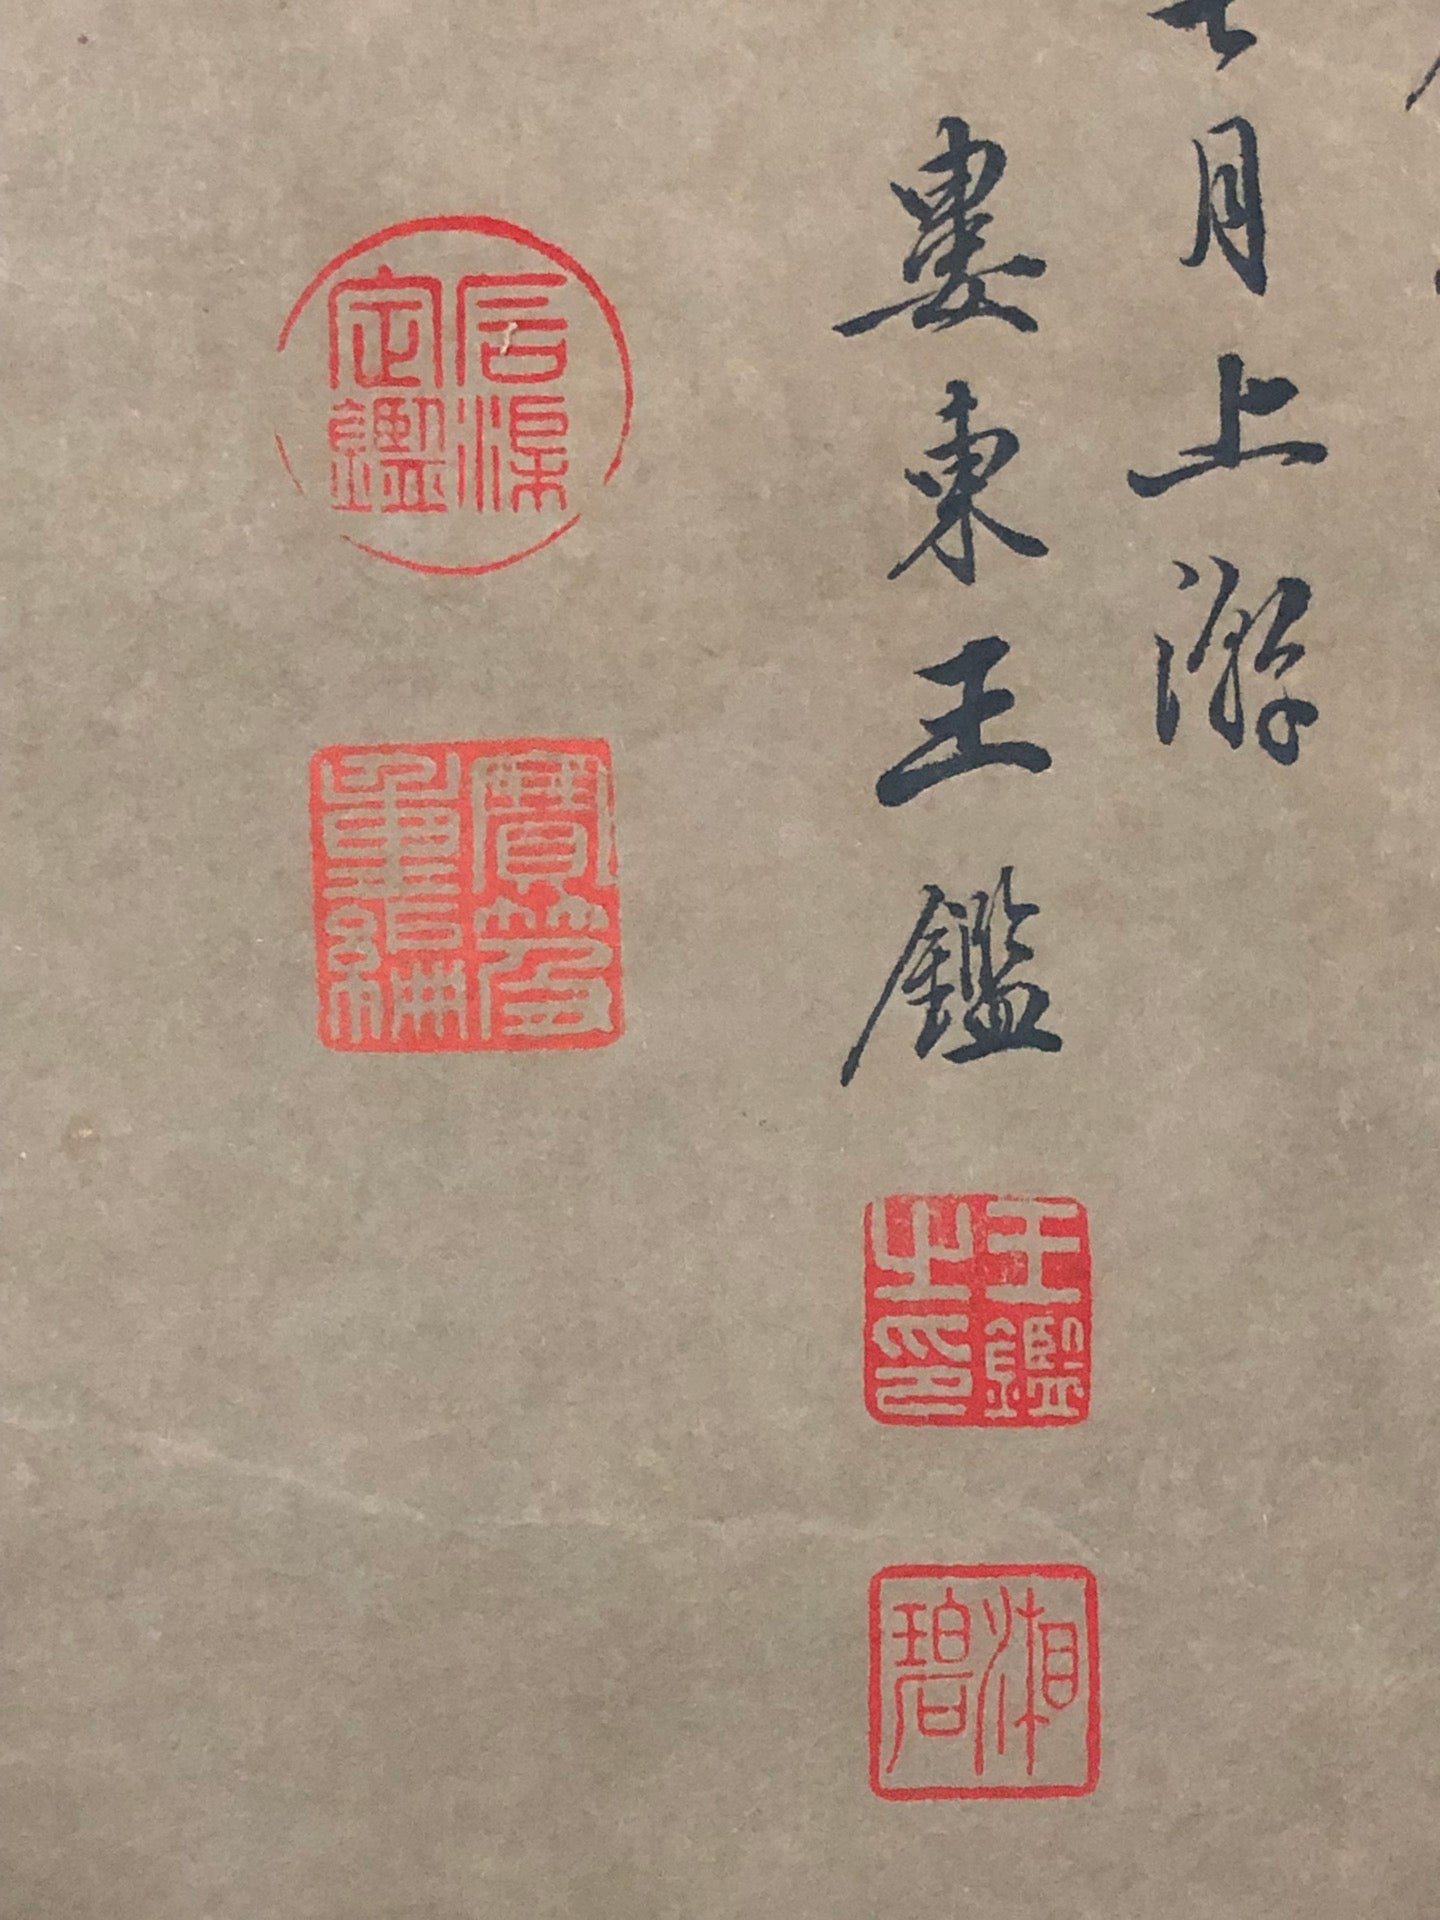 七月上游
婁東王鑑
石渠定鑑
寶笈重編
王鑑之印
湘碧